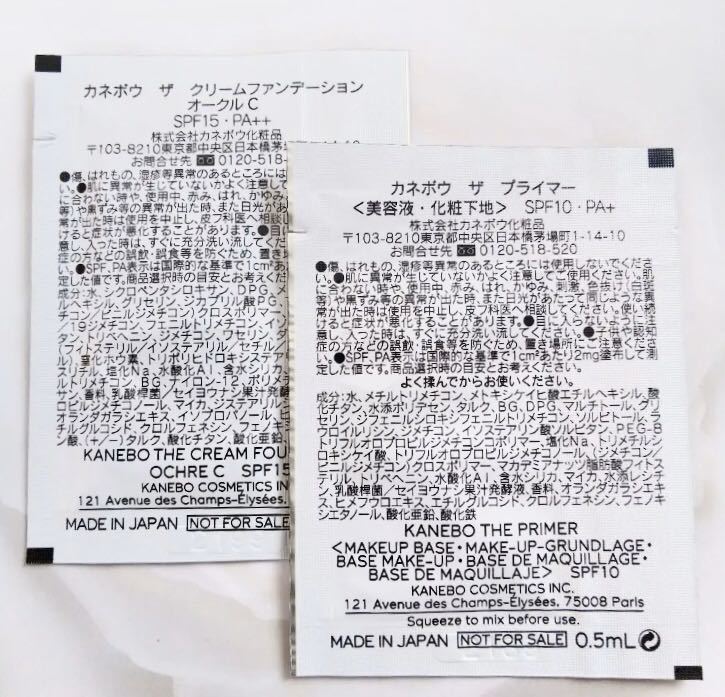 カネボウ ザ クリームファンデーション
オークル C
SPF15・PA++
株式会社カネボウ化粧品
〒103-8210東京都中央区日本橋茅場
お問合せ先 0120-518-
●傷、はれもの、湿疹等異常のあるところには
い。●肌に異常が生じていないかよく注意して
に合わない時や、使用中、赤み、はれ、かゆみ
等)や黒ずみ等の異常が出た時、また日光があ
常が出た時は使用を中止し、皮フ科医へ相談し
けると症状が悪化することがあります。●目に
意し、入った時は、すぐに充分洗い流してくだ
症の方などの誤飲・誤食等を防ぐため、置き場
●SPF、PA表示は国際的な基準で1cm²あた
した値です。商品選択時の目安とお考えくだ
成分:水、シクロペンタシロキサン、DPG、
ヘキシル、グリセリン、ジカプリル酸PG、
チコン/ビニルジメチコン)クロスポリマー
/19ジメチコン、フェニルトリメチコン、イソ
(フィトステリル/イソステアリル/セチル/
窒化ホウ素、トリポリヒドロキシステア
スリチル、塩化Na、水酸化Al、含水シリカ
ルトリメチコン、BG、ナイロン-12、ポリメ
サン、香料、乳酸桿菌/セイヨウナシ果汁発酵
ロビルジメチコノール、マイカ、ステアロイル
オランダガラシエキス、イソプロパノール、ヒ
チルグルコシド、クロルフェネシン、フェノ
ン酸、(+/-)タルク、酸化チタン、酸化亜鉛、
KANEBO THE CREAM FOU
OCHRE C SPF15
KANEBO COSMETICS IN
121 Avenue des Champs-Élysées,
MADE IN JAPAN NOT FOR SALE
カネボウ ザ プライマー
<美容液・化粧下地> SPF10・PA+
株式会社カネボウ化粧品
〒103-8210東京都中央区日本橋茅場町1-14-10
お問合せ先 0120-518-520
●傷、はれもの、湿疹等異常のあるところには使用しないでくださ
い。●肌に異常が生じていないかよく注意してご使用ください。肌
に合わない時や、使用中、赤み、はれ、かゆみ、刺激、色抜け(白斑
等)や黒ずみ等の異常が出た時、また日光があたって同じような異
常が出た時は使用を中止し、皮フ科医へ相談してください。使い続
けると症状が悪化することがあります。●目に入らないように注
意し、入った時は、すぐに充分洗い流してください。●子供や認知
症の方などの誤飲・誤食等を防ぐため、置き場所にご注意くださ
い。●SPF、PA表示は国際的な基準で1cm²あたり2mg塗布して測
定した値です。商品選択時の目安とお考えください。
よく揉んでからお使いください。
成分:水、メチルトリメチコン、メトキシケイヒ酸エチルヘキシル、酸
化チタン、水添ポリデセン、タルク、BG、DPG、マルチトール、グリ
セリン、フェニルシロキシフェニルトリメチコン、ソルビトール、ラ
ウロイルリシン、ジメチコン、イソステアリン酸ソルビタン、PEG-8
トリフルオロプロピルジメチコンコポリマー、塩化Na、トリメチルシ
ロキシケイ酸、トリフルオロプロピルジメチコノール、(ジメチコン/
ビニルジメチコン)クロスポリマー、マカデミアナッツ脂肪酸フィトス
テリル、トリベヘニン、水酸化Al、含水シリカ、マイカ、水添レシチ
ン、乳酸桿菌/セイヨウナシ果汁発酵液、香料、オランダガラシエキ
ス、ヒメフウロエキス、エチルグルコシド、クロルフェネシン、フェノキ
シエタノール、酸化亜鉛、酸化鉄
KANEBO THE PRIMER
<MAKEUP BASE・MAKE-UP-GRUNDLAGE・
BASE MAKE-UP・BASE DE MAQUILLAGE・
BASE DE MAQUILLAJE> SPF10
KANEBO COSMETICS INC.
121 Avenue des Champs-Élysées, 75008 Paris
Squeeze to mix before use.
MADE IN JAPAN NOT FOR SALE 0.5mL